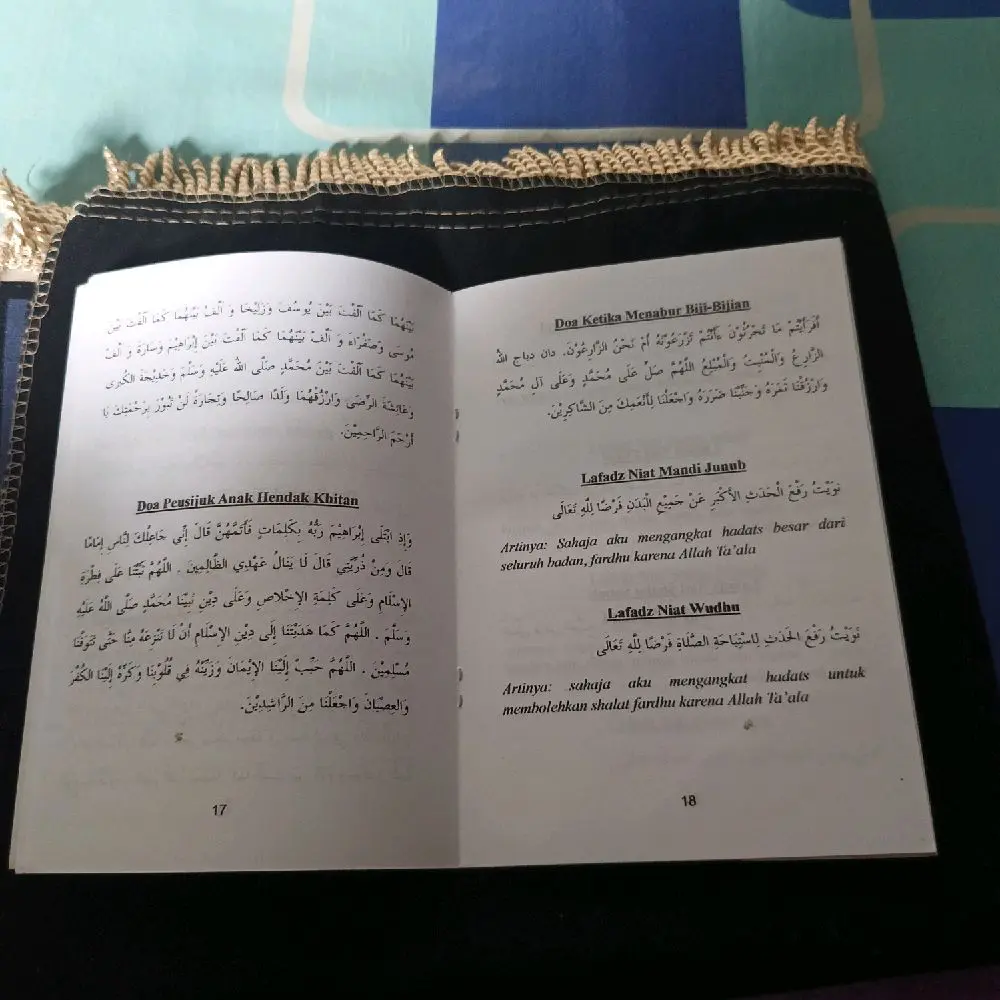 بَيْنَهُمَا كَمَا أَلَّفْتَ بَيْنَ يُوسُفَ وَزَلِيْخَا وَ أَلِّفْ بَيْنَهُمَا كَمَا أَلَّفْتَ بَيْنَ
مُوسَى وَصَفْرَاءَ وَ أَلِّفْ بَيْنَهُمَا كَمَا أَلَّفْتَ بَيْنَ إِبْرَاهِيْمَ وَسَارَةَ وَ أَلِّفْ
بَيْنَهُمَا كَمَا أَلَّفْتَ بَيْنَ مُحَمَّدٍ صَلَّى اللهُ عَلَيْهِ وَسَلَّمَ وَخَدِيْجَةَ الْكُبْرَى
وَعَائِشَةَ الرِّضَى وَارْزُقْهُمَا وَلَدًا صَالِحًا وَتِجَارَةً لَنْ تَبُوْرَ بِرَحْمَتِكَ يَا
أَرْحَمَ الرَّاحِمِيْنَ.
Doa Peusijuk Anak Hendak Khitan
وَإِذِ ابْتَلَى إِبْرَاهِيْمَ رَبُّهُ بِكَلِمَاتٍ فَأَتَمَّهُنَّ قَالَ إِنِّي جَاعِلُكَ لِلنَّاسِ إِمَامًا
قَالَ وَمِنْ ذُرِّيَّتِي قَالَ لَا يَنَالُ عَهْدِي الظَّالِمِيْنَ . اللَّهُمَّ ثَبِّتْنَا عَلَى فِطْرَةِ
الإِسْلَامِ وَعَلَى كَلِمَةِ الإِخْلَاصِ وَعَلَى دِيْنِ نَبِيِّنَا مُحَمَّدٍ صَلَّى اللَّهُ عَلَيْهِ
وَسَلَّمَ . اللَّهُمَّ كَمَا هَدَيْتَنَا إِلَى دِيْنِ الإِسْلَامِ أَنْ لَا تَنْزِعَهُ مِنَّا حَتَّى تَتَوَفَّنَا
مُسْلِمِيْنَ . اللَّهُمَّ حَبِّبْ إِلَيْنَا الإِيْمَانَ وَزَيِّنْهُ فِي قُلُوْبِنَا وَكَرِّهْ إِلَيْنَا الكُفْرَ
وَالعِصْيَانَ وَاجْعَلْنَا مِنَ الرَّاشِدِيْنَ.
17
Doa Ketika Menabur Biji-Bijian
أَفَرَأَيْتُمْ مَا تَحْرُثُوْنَ ءَأَنْتُمْ تَزْرَعُوْنَهُ أَمْ نَحْنُ الزَّارِعُوْنَ. دان دباج الله
الزَّارِعُ وَالْمُنْبِتُ وَالْمُبْلِغُ اللَّهُمَّ صَلِّ عَلَى مُحَمَّدٍ وَعَلَى آلِ مُحَمَّدٍ
وَارْزُقْنَا ثَمَرَهُ وَجَنِّبْنَا ضَرَرَهُ وَاجْعَلْنَا لِأَنْعُمِكَ مِنَ الشَّاكِرِيْنَ.
Lafadz Niat Mandi Junub
نَوَيْتُ رَفْعَ الْحَدَثِ الأَكْبَرِ عَنْ جَمِيْعِ الْبَدَنِ فَرْضًا لِلَّهِ تَعَالَى
Artinya: Sahaja aku mengangkat hadats besar dari
seluruh badan, fardhu karena Allah Ta'ala
Lafadz Niat Wudhu
نَوَيْتُ رَفْعَ الحَدَثِ لِاسْتِبَاحَةِ الصَّلَاةِ فَرْضًا لِلَّهِ تَعَالَى
Artinya: sahaja aku mengangkat hadats untuk
membolehkan shalat fardhu karena Allah Ta'ala
18